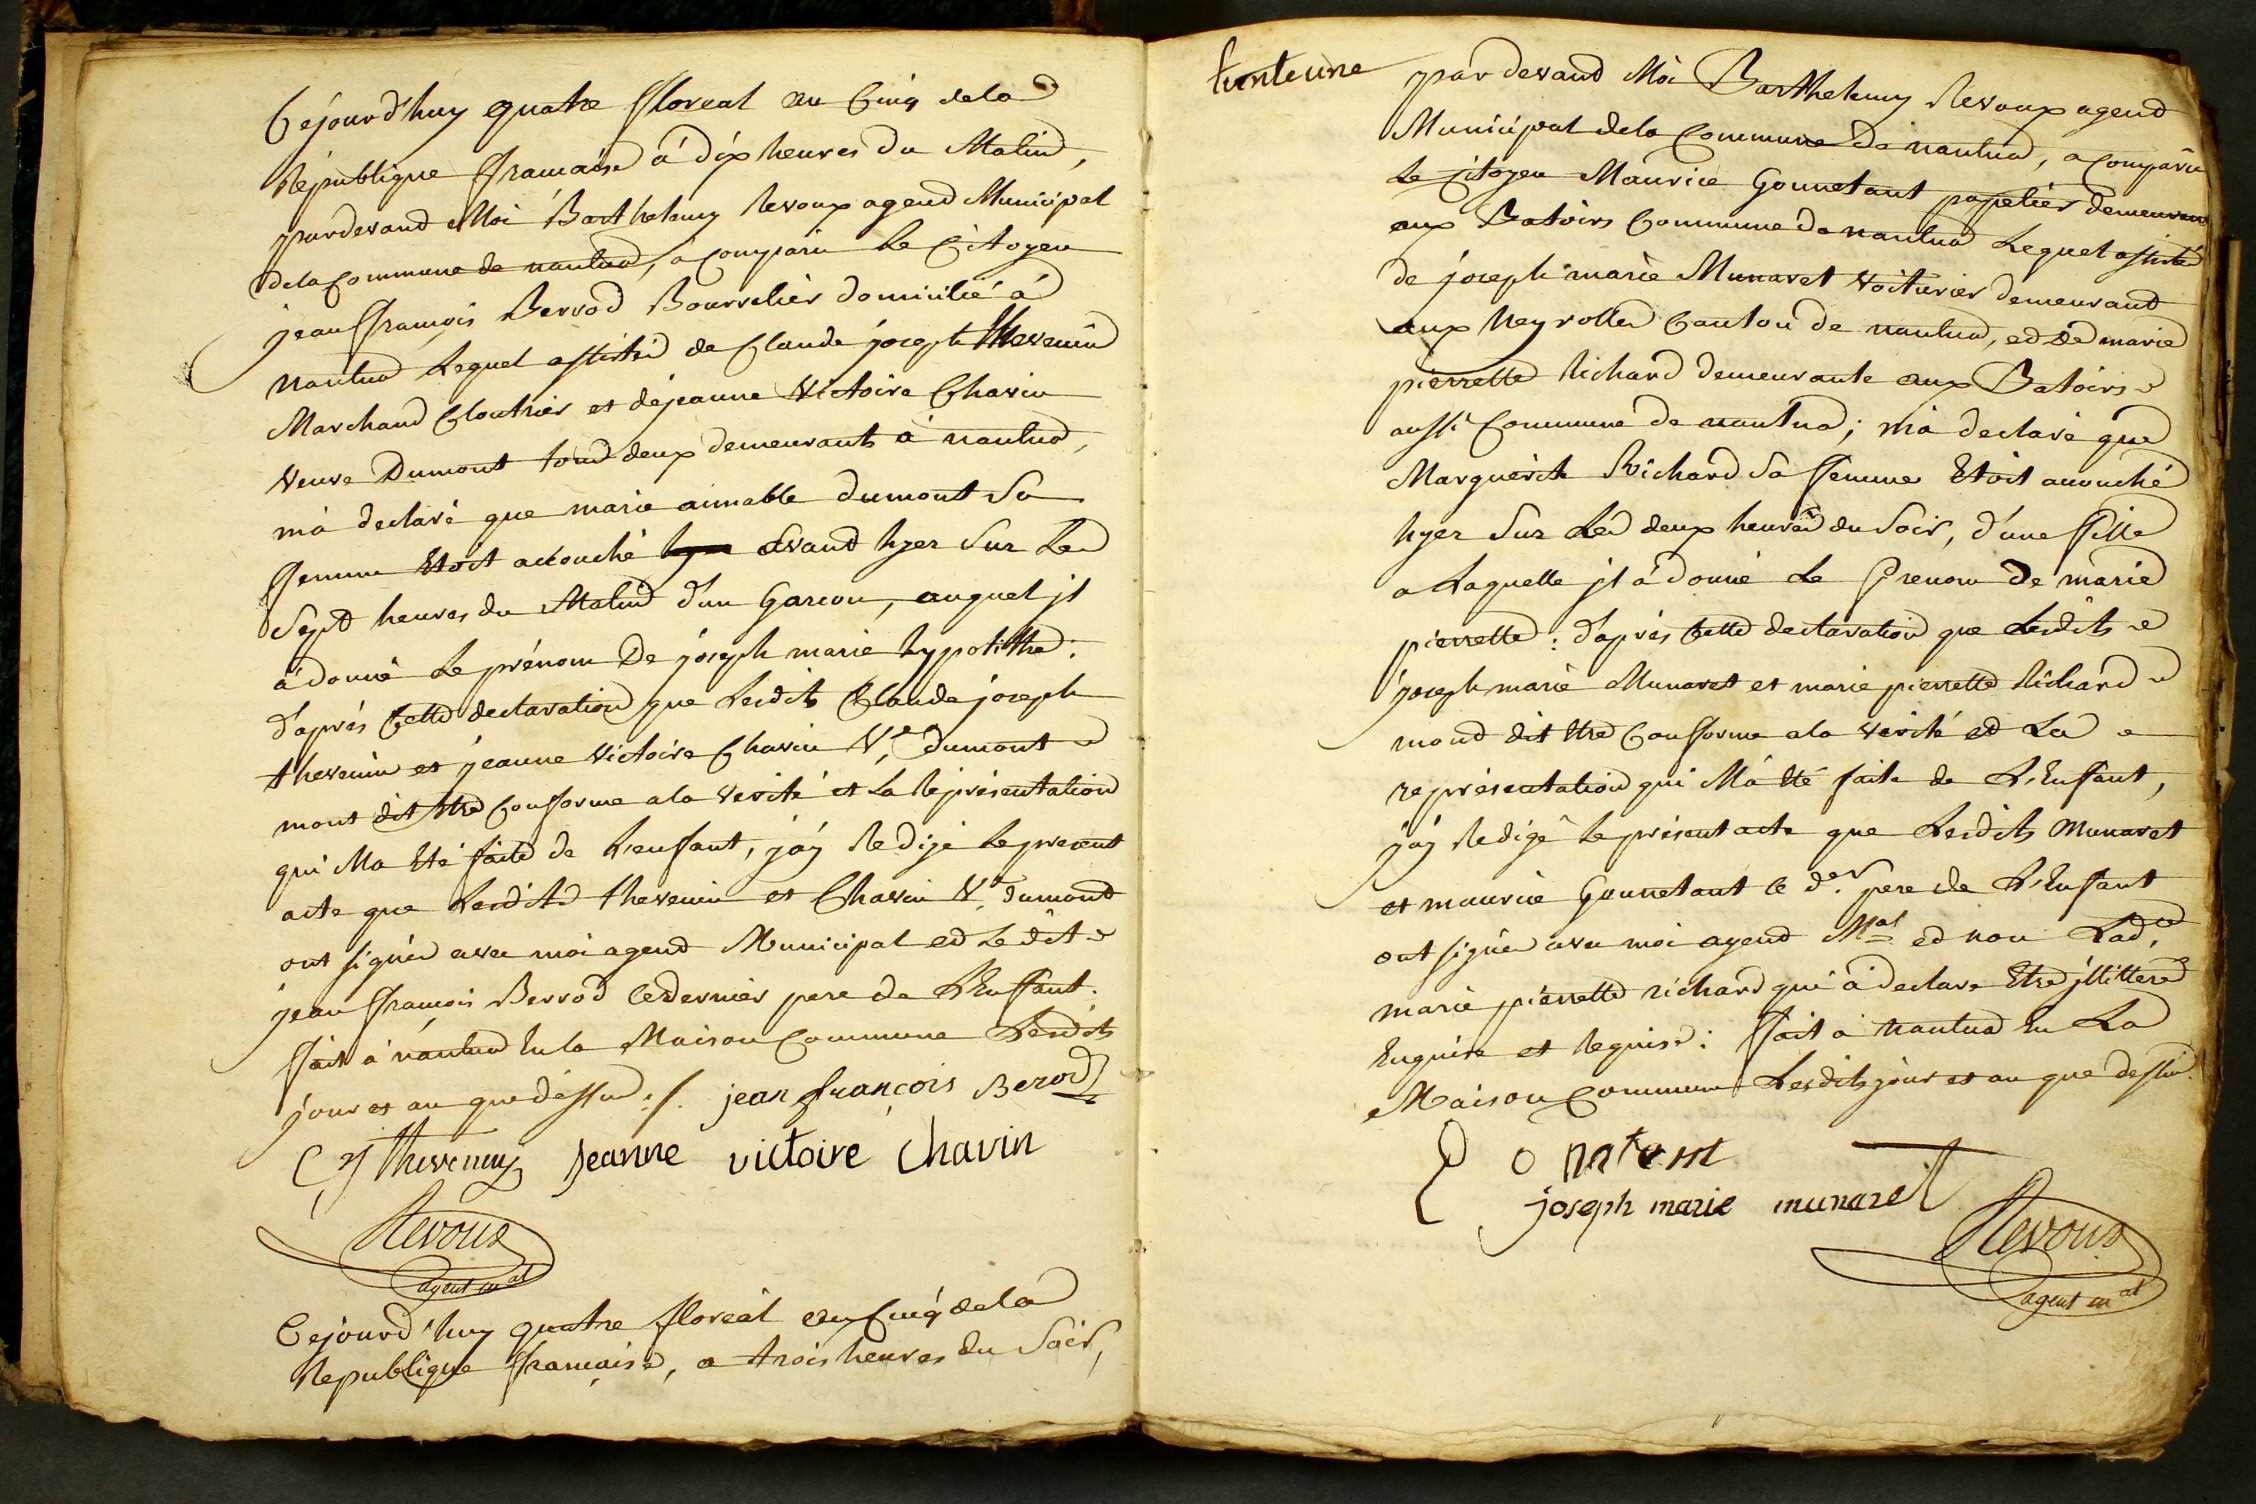 Cejourd'huy quatre floreal an Cinq dela
Republique francaise à dix heures du Matin,
pardevand Moi Barthelemy Revoux agend Municipal
dela Commune de nantua, à comparu Le Citoyen
jean françois Berrod Bourrelier domicilié à
nantua Lequel assisté de Claude joseph thevenin
Marchand Cloutier et dejeanne Victoire Chavin
veuve Dumont tous deux demeurants à nantua,
m'à declaré que marie aimable dumont Sa
femme Etoit accouché avand hyer Sur Les
Sept heures du Matin d'un Garcon, auquel jl
à donné Le prénom De joseph marie hypolithe :
d'après Cette declaration que Lesdits Claude joseph
thevenin et jeanne Victoire Chavin Ve dumont
mont dit Etre Conforme ala verité et La Représentation
qui Ma Eté faite de L'enfant, j'ay Redigé Le present
acte que Lesdits thevenin et Chavin Ve dumont
ont signés avec moi agend Municipal ed Le dit
jean françois Berrod Cedernier pere de L'Enfant.
fait à nantua En la Maison Commune Lesdits
jour et an que dessus ./. jean françois Berod
C J Thevenin jeanne victoire chavin
Revoux
agent mal
Cejourd'huy quatre floreal an Cinq dela
Republique francaise, a trois heures du Soir,
trenteune
pardevand Moi Barthelemy Revoux agend
Municipal dela Commune de nantua, a comparu
Le Citoyen Maurice Gonnetant papetier demeurant
aux Batoirs Commune de nantua Lequel assisté
de joseph marie Munaret Voiturier demeurant
aux Neyrolles Canton de nantua, ed de marie
pierrette Richard demeurante aux Batoirs
aussi Commune de nantua ; m'à declaré que
Marguerite Richard Sa femme Etoit accouché
hyer Sur Les deux heures du Soir, d'une fille
a Laquelle jl à donné Le Prenom De marie
pierrette : d'après Cette declaration que Lesdits
joseph marie Munaret et marie pierrette Richard
mond dit Etre Conforme ala verité ed La
représentation qui M'à Eté faite de L'Enfant,
j'ay Redigé Le présent acte que Lesdits Munaret
et maurice Gonnetant Ce der pere de L'Enfant
ont signés avec moi agend Mal ed non Lade
marie pierrette richard qui à declare Etre jllittere
Enquise et Requise : fait à Nantua En La
Maison Commune Lesdits jour et an que dessus.
joseph marie munaret
Revoux
agent mal